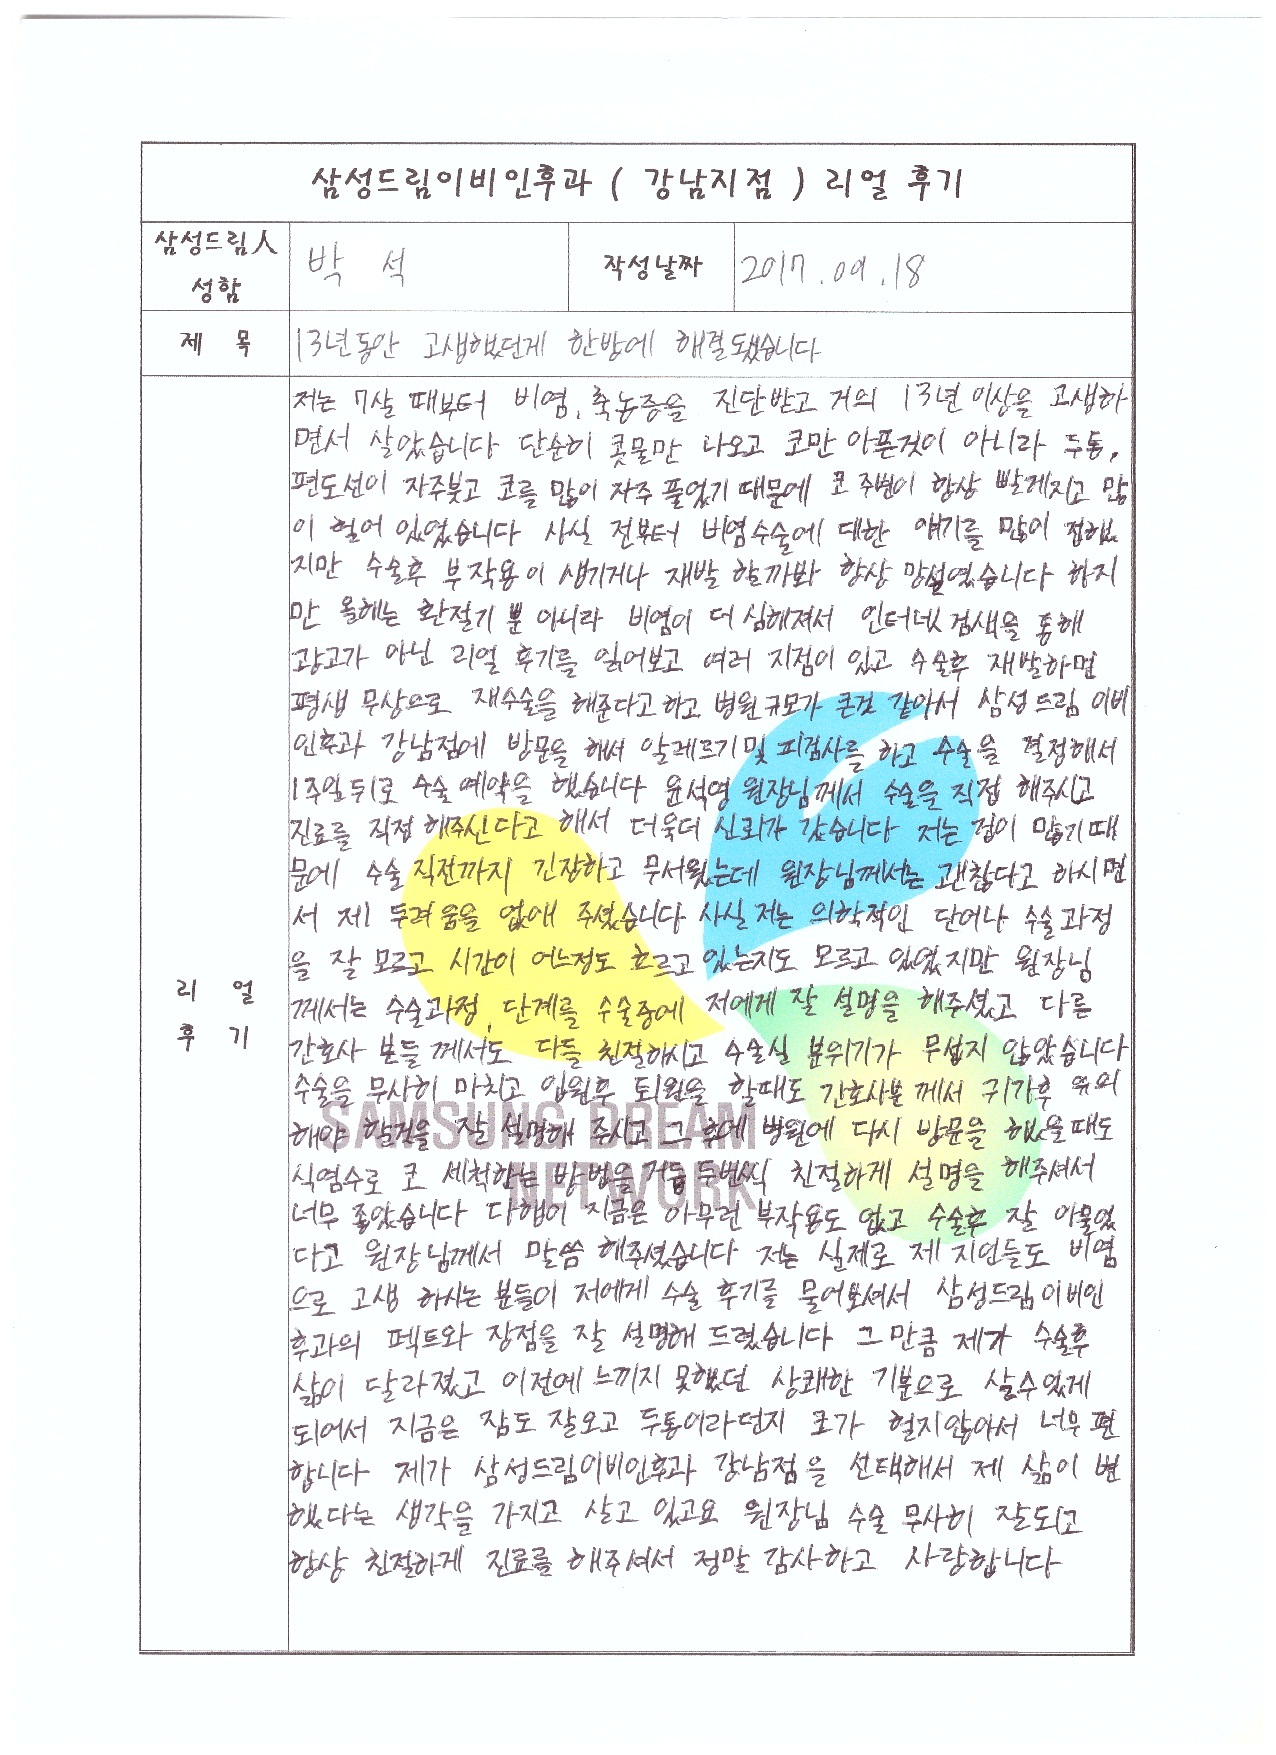 삼성드림이비인후과 ( 강남지점 ) 리얼 후기
삼성드림人
성함
박 석
작성날짜
2017.09.18
제 목
13년동안 고생했던게 한방에 해결됐습니다
리 얼
후 기
저는 7살 때부터 비염, 축농증을 진단받고 거의 13년 이상을 고생하
면서 살았습니다 단순히 콧물만 나오고 코만 아픈것이 아니라 두통,
편도선이 자주붓고 코를 많이 자주 풀었기 때문에 코 주변이 항상 빨게지고 많
이 헐어 있었습니다 사실 전부터 비염수술에 대한 얘기를 많이 접했
지만 수술후 부작용이 생기거나 재발 할까봐 항상 망설였습니다 하지
만 올해는 환절기 뿐 아니라 비염이 더 심해져서 인터넷 검색을 통해
광고가 아닌 리얼 후기를 읽어보고 여러 지점이 있고 수술후 재발하면
평생 무상으로 재수술을 해준다고 하고 병원규모가 큰것 같아서 삼성드림 이비
인후과 강남점에 방문을 해서 알레르기 및 피검사를 하고 수술을 결정해서
1주일뒤로 수술 예약을 했습니다 윤석영 원장님께서 수술을 직접 해주시고
진료를 직접 해주신다고 해서 더욱더 신뢰가 갔습니다 저는 겁이 많기 때
문에 수술 직전까지 긴장하고 무서웠는데 원장님께서는 괜찮다고 하시면
서 제 두려움을 없애 주셨습니다 사실 저는 의학적인 단어나 수술과정
을 잘 모르고 시간이 어느정도 흐르고 있는지도 모르고 있었지만 원장님
께서는 수술과정, 단계를 수술중에 저에게 잘 설명을 해주셨고 다른
간호사 분들 께서도 다들 친절하시고 수술실 분위기가 무섭지 않았습니다
수술을 무사히 마치고 입원후 퇴원을 할때도 간호사분 께서 귀가후 유의
해야 할것을 잘 설명해 주시고 그 후에 병원에 다시 방문을 했을때도
식염수로 코 세척하는 방법을 거듭 두번씩 친절하게 설명을 해주셔서
너무 좋았습니다 다행이 지금은 아무런 부작용도 없고 수술후 잘 아물었
다고 원장님께서 말씀 해주셨습니다 저는 실제로 제 지인들도 비염
으로 고생 하시는 분들이 저에게 수술 후기를 물어보셔서 삼성드림이비인
후과의 팩트와 장점을 잘 설명해 드렸습니다 그만큼 제가 수술후
삶이 달라졌고 이전에 느끼지 못했던 상쾌한 기분으로 살수있게
되어서 지금은 잠도 잘오고 두통이라던지 코가 헐지않아서 너무 편
합니다 제가 삼성드림이비인후과 강남점을 선택해서 제 삶이 변
했다는 생각을 가지고 살고 있고요 원장님 수술 무사히 잘되고
항상 친절하게 진료를 해주셔서 정말 감사하고 사랑합니다
SAMSUNG DREAM
NETWORK